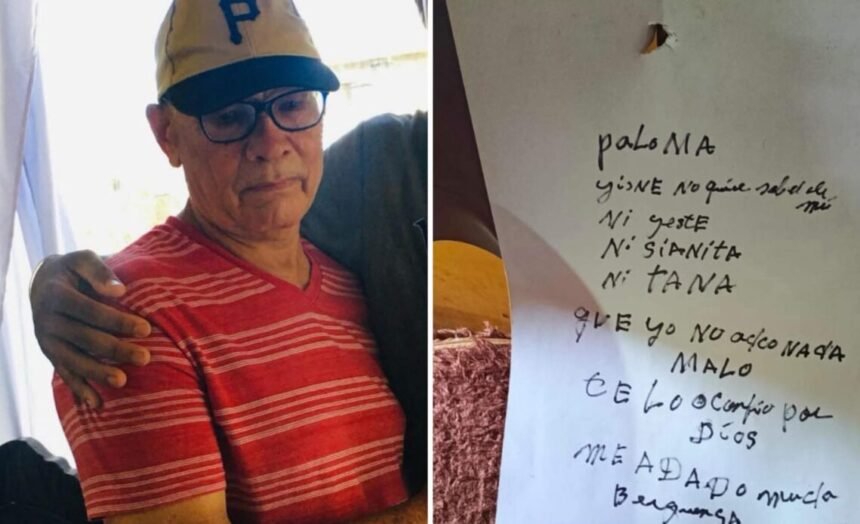 P
paloMA
yisNE No quise saber de mi
Ni yeste
Ni SiANitA
Ni TANA
qUE yo NO adco NAdA
MALO
tE Lo o conpio por
Dios
ME ADADO mucha
Berguensa